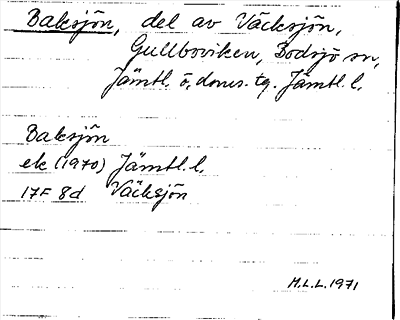 Baksjön, del av Väcksjön,
Gullboviken, Bodsjö sn,
Jämtl. ö. doms. tg. Jämtl. l.
Baksjön
ek (1970) Jämtl. l.
17F 8d Väcksjön
H.L.L. 1971